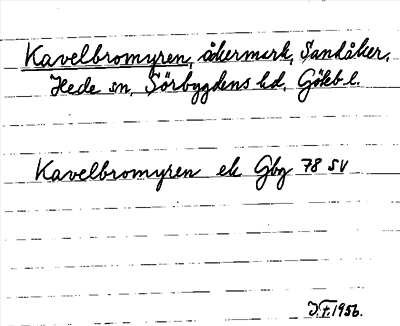 Kavelbromyren, åkermark, Sandåker,
Hede sn, Sörbygdens hd, Götebl.
Kavelbromyren ek Gbg 78 SV
1956.